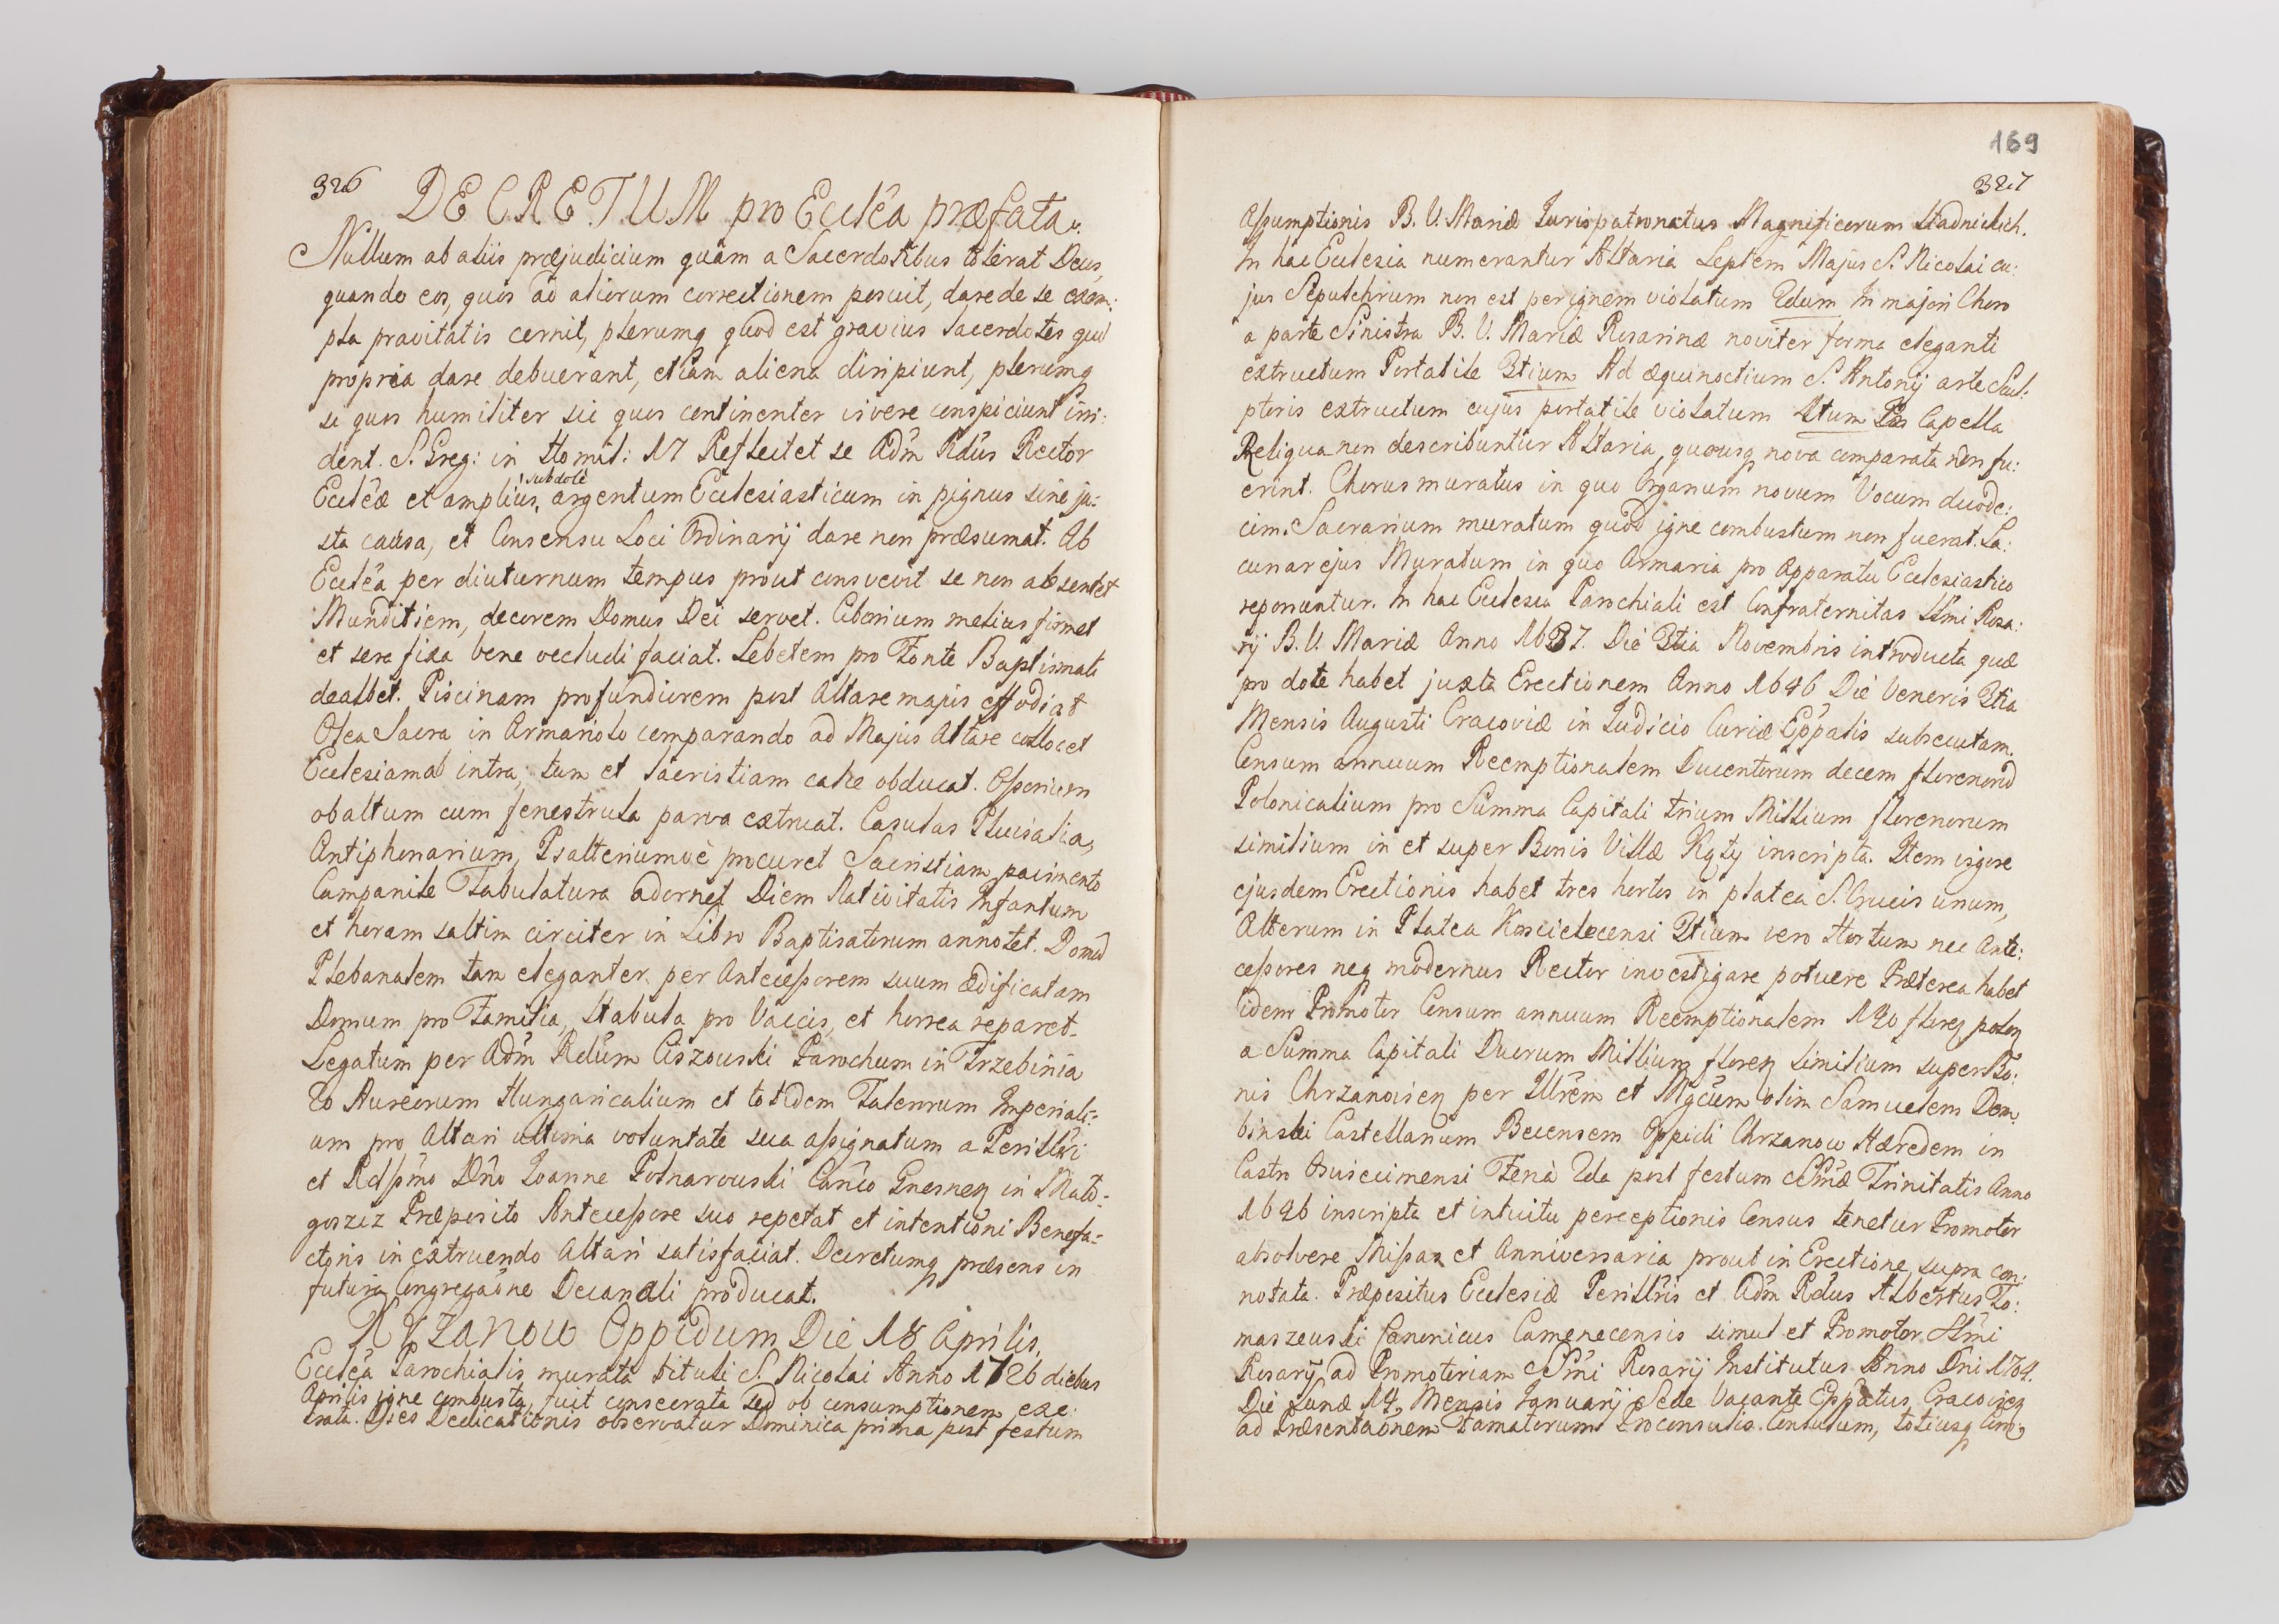 326
DECRETUM pro Eccleã præfata.
Nullum ab aliis præjudicium quàm a Sacerdotibus tolerat Deus,
quando eos, quos ad aliorum correctionem posuit, dare de se exem:
pla pravitatis cernit, plerumq quod est gravius Sacerdotes qui
propria dare debuerant, etiam aliena diripiunt, plerumq
si quos humiliter sic quos continenter vivere conspiciunt irri:
dent. S. Greg: in Homil: 17 Reflectet se Adm Rdus Rector
subdole
Eccleæ et amplius, argentum Ecclesiasticum in pignus sine ju:
sta causa, et Consensu Loci Ordinarij dare non præsumat. Ab
Eccleã per diuturnum tempus prout consvevit se non absentet
Munditiem, decorem Domus Dei servet. Ciborium melius firmet
et sera fixa bene occludi faciat. Lebetem pro Fonte Baptismati
dealbet. Piscinam profundiorem post Altare majus effodiat
Olea Sacra in Armariolo comparando ad Majus Altare collocet
Ecclesiam ab intra, tum et Sacristiam calce obducat. Ossorium
obaltum cum fenestrula parva extruat. Casulas Pluvialia,
Antiphonarium, Psalteriumvè procuret Sacristiam pavimento
Campanile Tabulatura adornet Diem Nativitatis Infantum
et horam saltim circiter in Libro Baptisatorum annotet. Domũ
Plebanalem tam eleganter per Antecessorem suum ædificatam
Domum pro Familia, Stabula pro Vaccis, et horrea reparet.
Legatum per Adm Rdum Ciszowski Parochum in Trzebinia
20 Aureorum Hungaricalium et totidem Talerorum Imperiali=
um pro Altari ultima voluntate sua assignatum a Perillri
et Rdssmo Dno Joanne Polnarowski Canco Gnesnen in Mało-
goszcz Præposito Antecessore suo repetat et intentioni Benefa=
ctoris in extruendo Altari satisfaciat. Decretumq præsens in
futura Congregaõne Decanali producat.
Chrzanow Oppidum Die 18 Aprilis.
Eccleã Parochialis murata tituli S. Nicolai Anno 1726 diebus
Aprilis igne combusta, fuit consecrata sed ob consumptionem exe:
crata. Dies Dedicationis observatur Dominica prima post festum
169
327
Assumptionis B. V. Mariæ Jurispatronatus Magnificorum Stadnickich.
In hac Ecclesia numerantur Altaria Septem Majus S. Nicolai cu:
jus Sepulchrum non est per ignem violatum 2dum In majori Choro
a parte Sinistra B. V. Mariæ Rosarinæ noviter forma eleganti
extructum Portatile 3tium Ad æquinoctium S. Antonij arte Scul:
ptoris extructum cujus portatile violatum 4tum In Capella
Reliqua non describuntur Altaria, quousq nova comparata non fu:
erint. Chorus muratus in quo Organum novum Vocum duode:
cim. Sacrarium muratum quod igne combustum non fuerat. La:
cunar ejus Muratum in quo Armaria pro Apparatu Ecclesiastico
reponuntur. In hac Ecclesia Parochiali est Confraternitas SSmi Rosa:
rij B. V. Mariæ Anno 1637. Die 3tia Novembris introducta quæ
pro dote habet juxta Erectionem Anno 1646 Die Veneris 3tia
Mensis Augusti Cracoviæ in Judicio Curiæ Eppalis subsecutam.
Censum annuum Reemptionalem Ducentorum decem florenorũ
Polonicalium pro Summa Capitali trium Millium florenorum
similium in et super Bonis Villæ Kąty inscripta. Item vigore
ejusdem Erectionis habet tres hortos in platea S. Crucis unum,
Alterum in Platea Kościelecensi 3tium vero Hortum nec Ante:
cessores neq modernus Rector investigare potuere Præterea habet
idem Promotor Censum annuum Reemptionalem 140 floren polon
a Summa Capitali Duorum Millium floren similium super Bo:
nis Chrzanovien per Illrem et Mgcum olim Samuelem Dem:
binski Castellanum Becensem Oppidi Chrzanow Hæredem in
Castro Osviecimensi Feria 2da post festum SSmæ Trinitatis Anno
1646 inscripta et intuitu perceptionis Census tenetur Promotor
absolvere Missas et Anniversaria prout in Erectione supra con:
notata. Præpositus Ecclesiæ Perillris et Adm Rdus Albertus To:
maszewski Canonicus Camenecensis simul et Promotor SSmi
Rosarij ad Promotoriam SSmi Rosarij Institutus Anno Dni 1704.
Die Lunæ 14. Mensis Januarij Sede Vacante Eppatus Cracovien
ad Præsentaõnem Famatorum Proconsulis Consulum, totiusq Com: